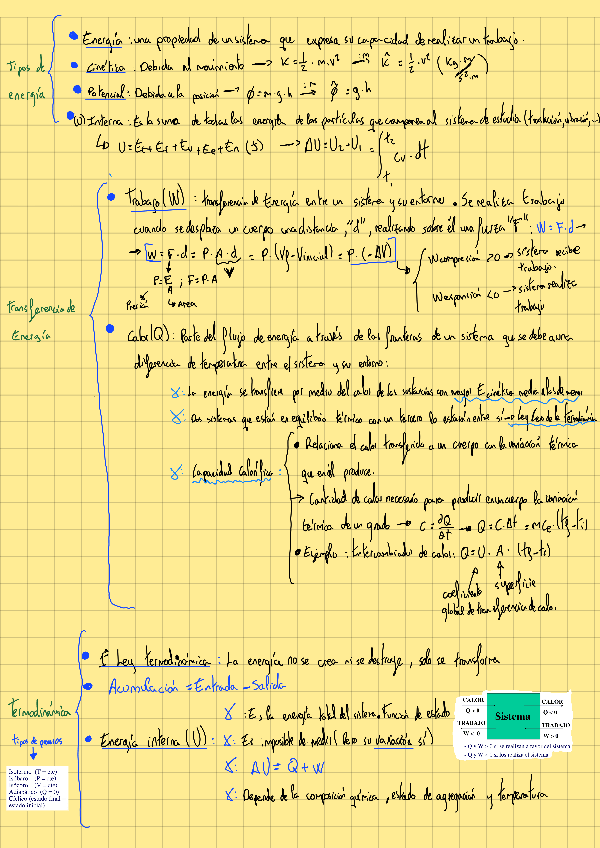 Tipos de energía
• Energía: una propiedad de un sistema que expresa su capacidad de realizar un trabajo.
• Cinética. Debida al movimiento → K = 1/2 · m·v² → K̂ = 1/2 · v²
• Potencial: Debida a la posición → ϕ = m·g·h → ϕ̂ = g·h
(U) Interna: Es la suma de todas las energías de las partículas que componen al sistema de estudio (traslación, vibración,
→ ΔU = U₂ - U₁ = ∫ Cv · dt
Transferencia de Energía
• Trabajo (W): transferencia de Energía entre un sistema y su entorno. Se realiza trabajo
cuando se desplaza un cuerpo una distancia, "d", realizando sobre él una fuerza "F": W = F·d →
→ W = F·d = P·A·d = P·(Vf - Vinicial) = P·(-ΔV)
W compresión >0 → sistema recibe trabajo.
W expansión <0 → sistema realiza trabajo
P = F/A ; F = P·A
Presión Área
• Calor (Q): Parte del flujo de energía a través de las fronteras de un sistema que se debe a una
diferencia de temperatura entre el sistema y su entorno:
La energía se transfiere por medio del calor de las sustancias con mayor E cinética media a las de menor
Dos sistemas que están en equilibrio térmico con un tercero lo estarán entre sí → Ley cero de la termodinámica
Capacidad calorífica:
• Relaciona el calor transferido a un cuerpo con la variación térmica
que en él produce.
→ Cantidad de calor necesario para producir en un cuerpo la variación
térmica de un grado → C = ∂Q/Δt → Q = C·Δt = m Ce·(tf - ti)
• Ejemplo: Intercambiador de calor: Q = U · A · (tf - ti)
coeficiente superficie
global de transferencia de calor.
Termodinámica
• 1ª Ley termodinámica: La energía no se crea ni se destruye, solo se transforma
• Acumulación = Entrada - Salida
: E, la energía total del sistema. Función de estado
• Energía interna (U): Es imposible de medir (Pero su variación sí)
ΔU = Q + W
Depende de la composición química, estado de agregación y temperatura
tipos de procesos
Cíclico (estado final
estado inicial)
CALOR
Q > 0
TRABAJO
W > 0
Sistema
CALOR
Q < 0
TRABAJO
W < 0